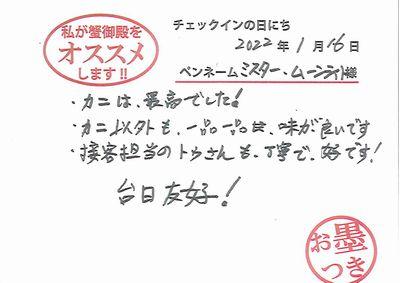 私が蟹御殿を
オススメ
します!!
チェックインの日にち
2022年1月16日
ペンネーム ミスター、ムーンライト様
・カニは、最高でした!
・カニ以外も、一品一品は、味が良いです
・接客担当のトウさんも、丁寧で、好です!
台日友好!
お墨
つき